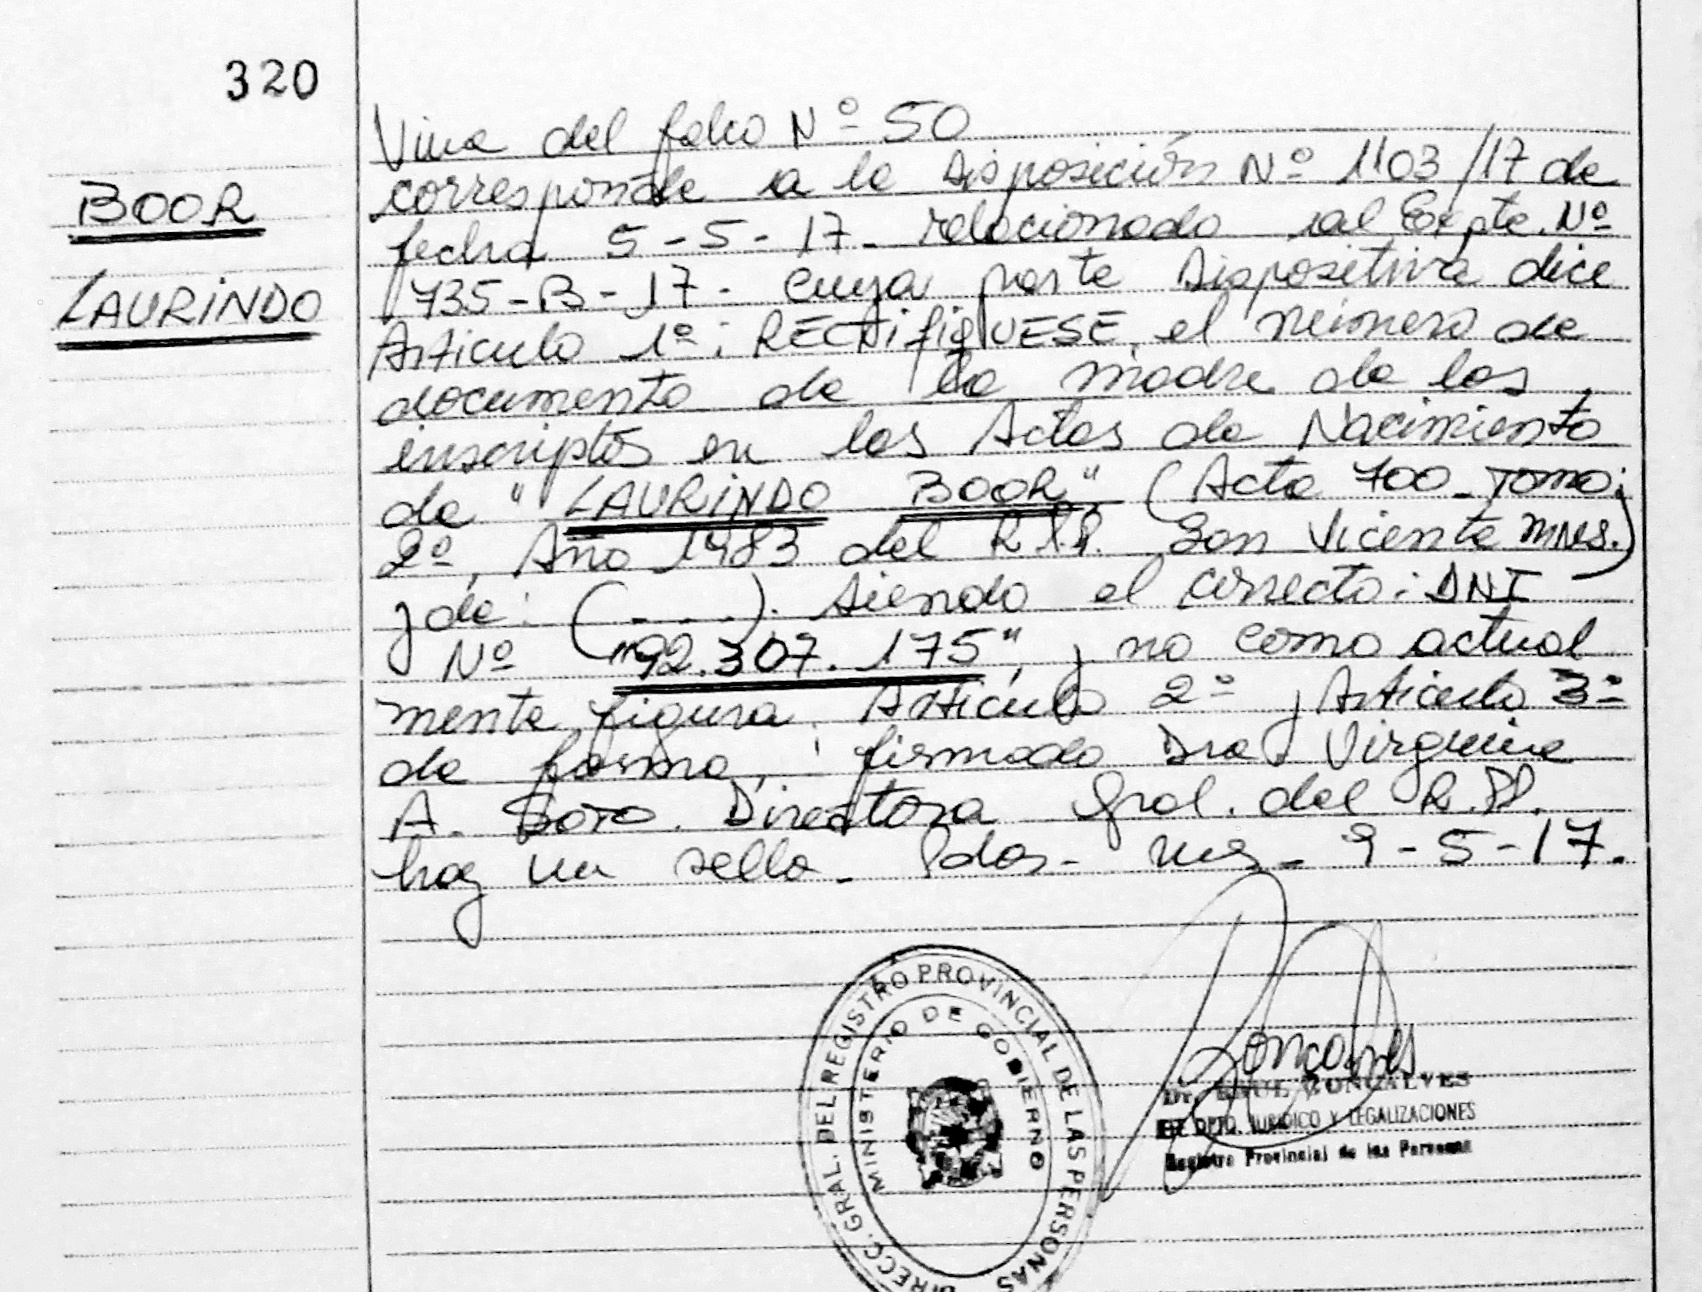 320
BOOR
LAURINDO
Viene del folio Nº 50
corresponde a la Disposición Nº 1103/17 de
fecha 5-5-17- relacionado al Expte. Nº
735-B-17- cuya parte Dispositiva dice
Articulo 1º: RECTifiqUESE, el número de
documento de la madre de los
inscriptos en las Actas de Nacimiento
de "LAURINDO BOOR" (Acta 700- Tomo:
2º, Año 1983 del R.P.P. San Vicente Mnes.)
y de: (....). Siendo el correcto: DNI
Nº "92.307.175", y no como actual
mente figura. Articulo 2º y Articulo 3º
de forma, firmado Dra. Virginia
A. Boro. Directora Gral. del R.PP.
hay un sello- Pdas- Mns- 9-5-17.
DIRECC. GRAL. DEL REGISTRO PROVINCIAL DE LAS PERSONAS
MINISTERIO DE GOBIERNO
Goncalves
Dr. RAUL GONCALVES
DPTO. JURIDICO Y LEGALIZACIONES
Registro Provincial de las Personas